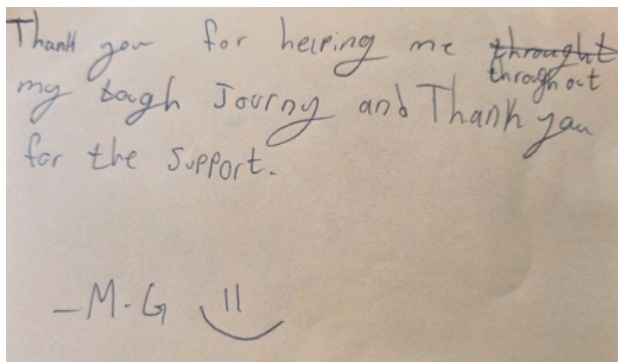 Thank you for helping me throught
throughout
my tough Journy and Thank you
for the support.
-M.G